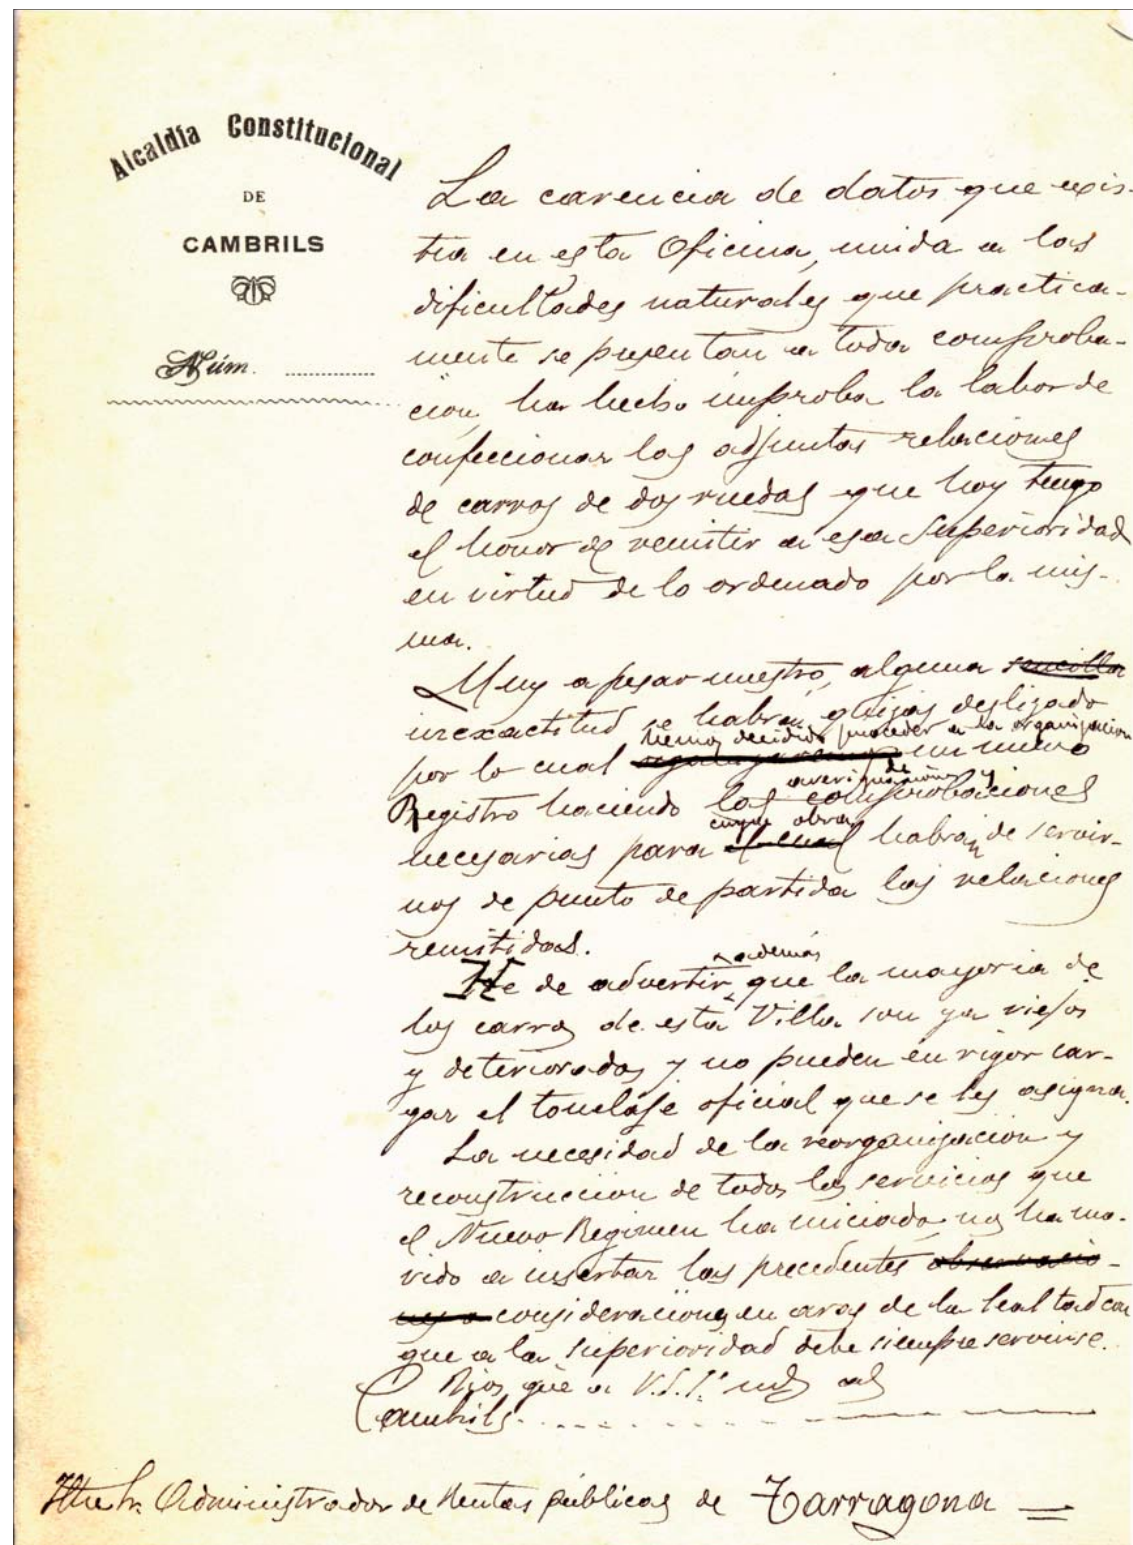 Alcaldía Constitucional
DE
CAMBRILS
Núm.
La carencia de datos que exis-
tia en esta Oficina, unida a las
dificultades naturales que practica-
mente se presentan a toda comproba-
ción, ha hecho improba la labor de
confeccionar las adjuntas relaciones
de carros de dos ruedas que hoy tengo
el honor de remitir a esa Superioridad
en virtud de lo ordenado por la mis-
ma.
Muy a pesar nuestro, alguna sencilla
inexactitud se habrá quizas deslizado
hemos decidido proceder a la organizacion
por lo cual un nuevo
de averiguaciones y
Registro haciendo las comprobaciones
cuya obra
necesarias para el cual habrán de servir-
nos de punto de partida las relaciones
remitidas.
además
He de advertir que la mayoria de
los carros de esta Villa son ya viejos
y deteriorados y no pueden en rigor car-
gar el tonelaje oficial que se les asigna.
La necesidad de la reorganizacion y
reconstruccion de todos los servicios que
el Nuevo Regimen ha iniciado nos ha mo-
vido a insertar las precedentes observacio-
nes o consideraciones en aras de la lealtad con
que a la superioridad debe siempre servirse.
Dios gūe a V.S.I. ms as
Cambrils
Iltre Sr. Administrador de Rentas públicas de Tarragona